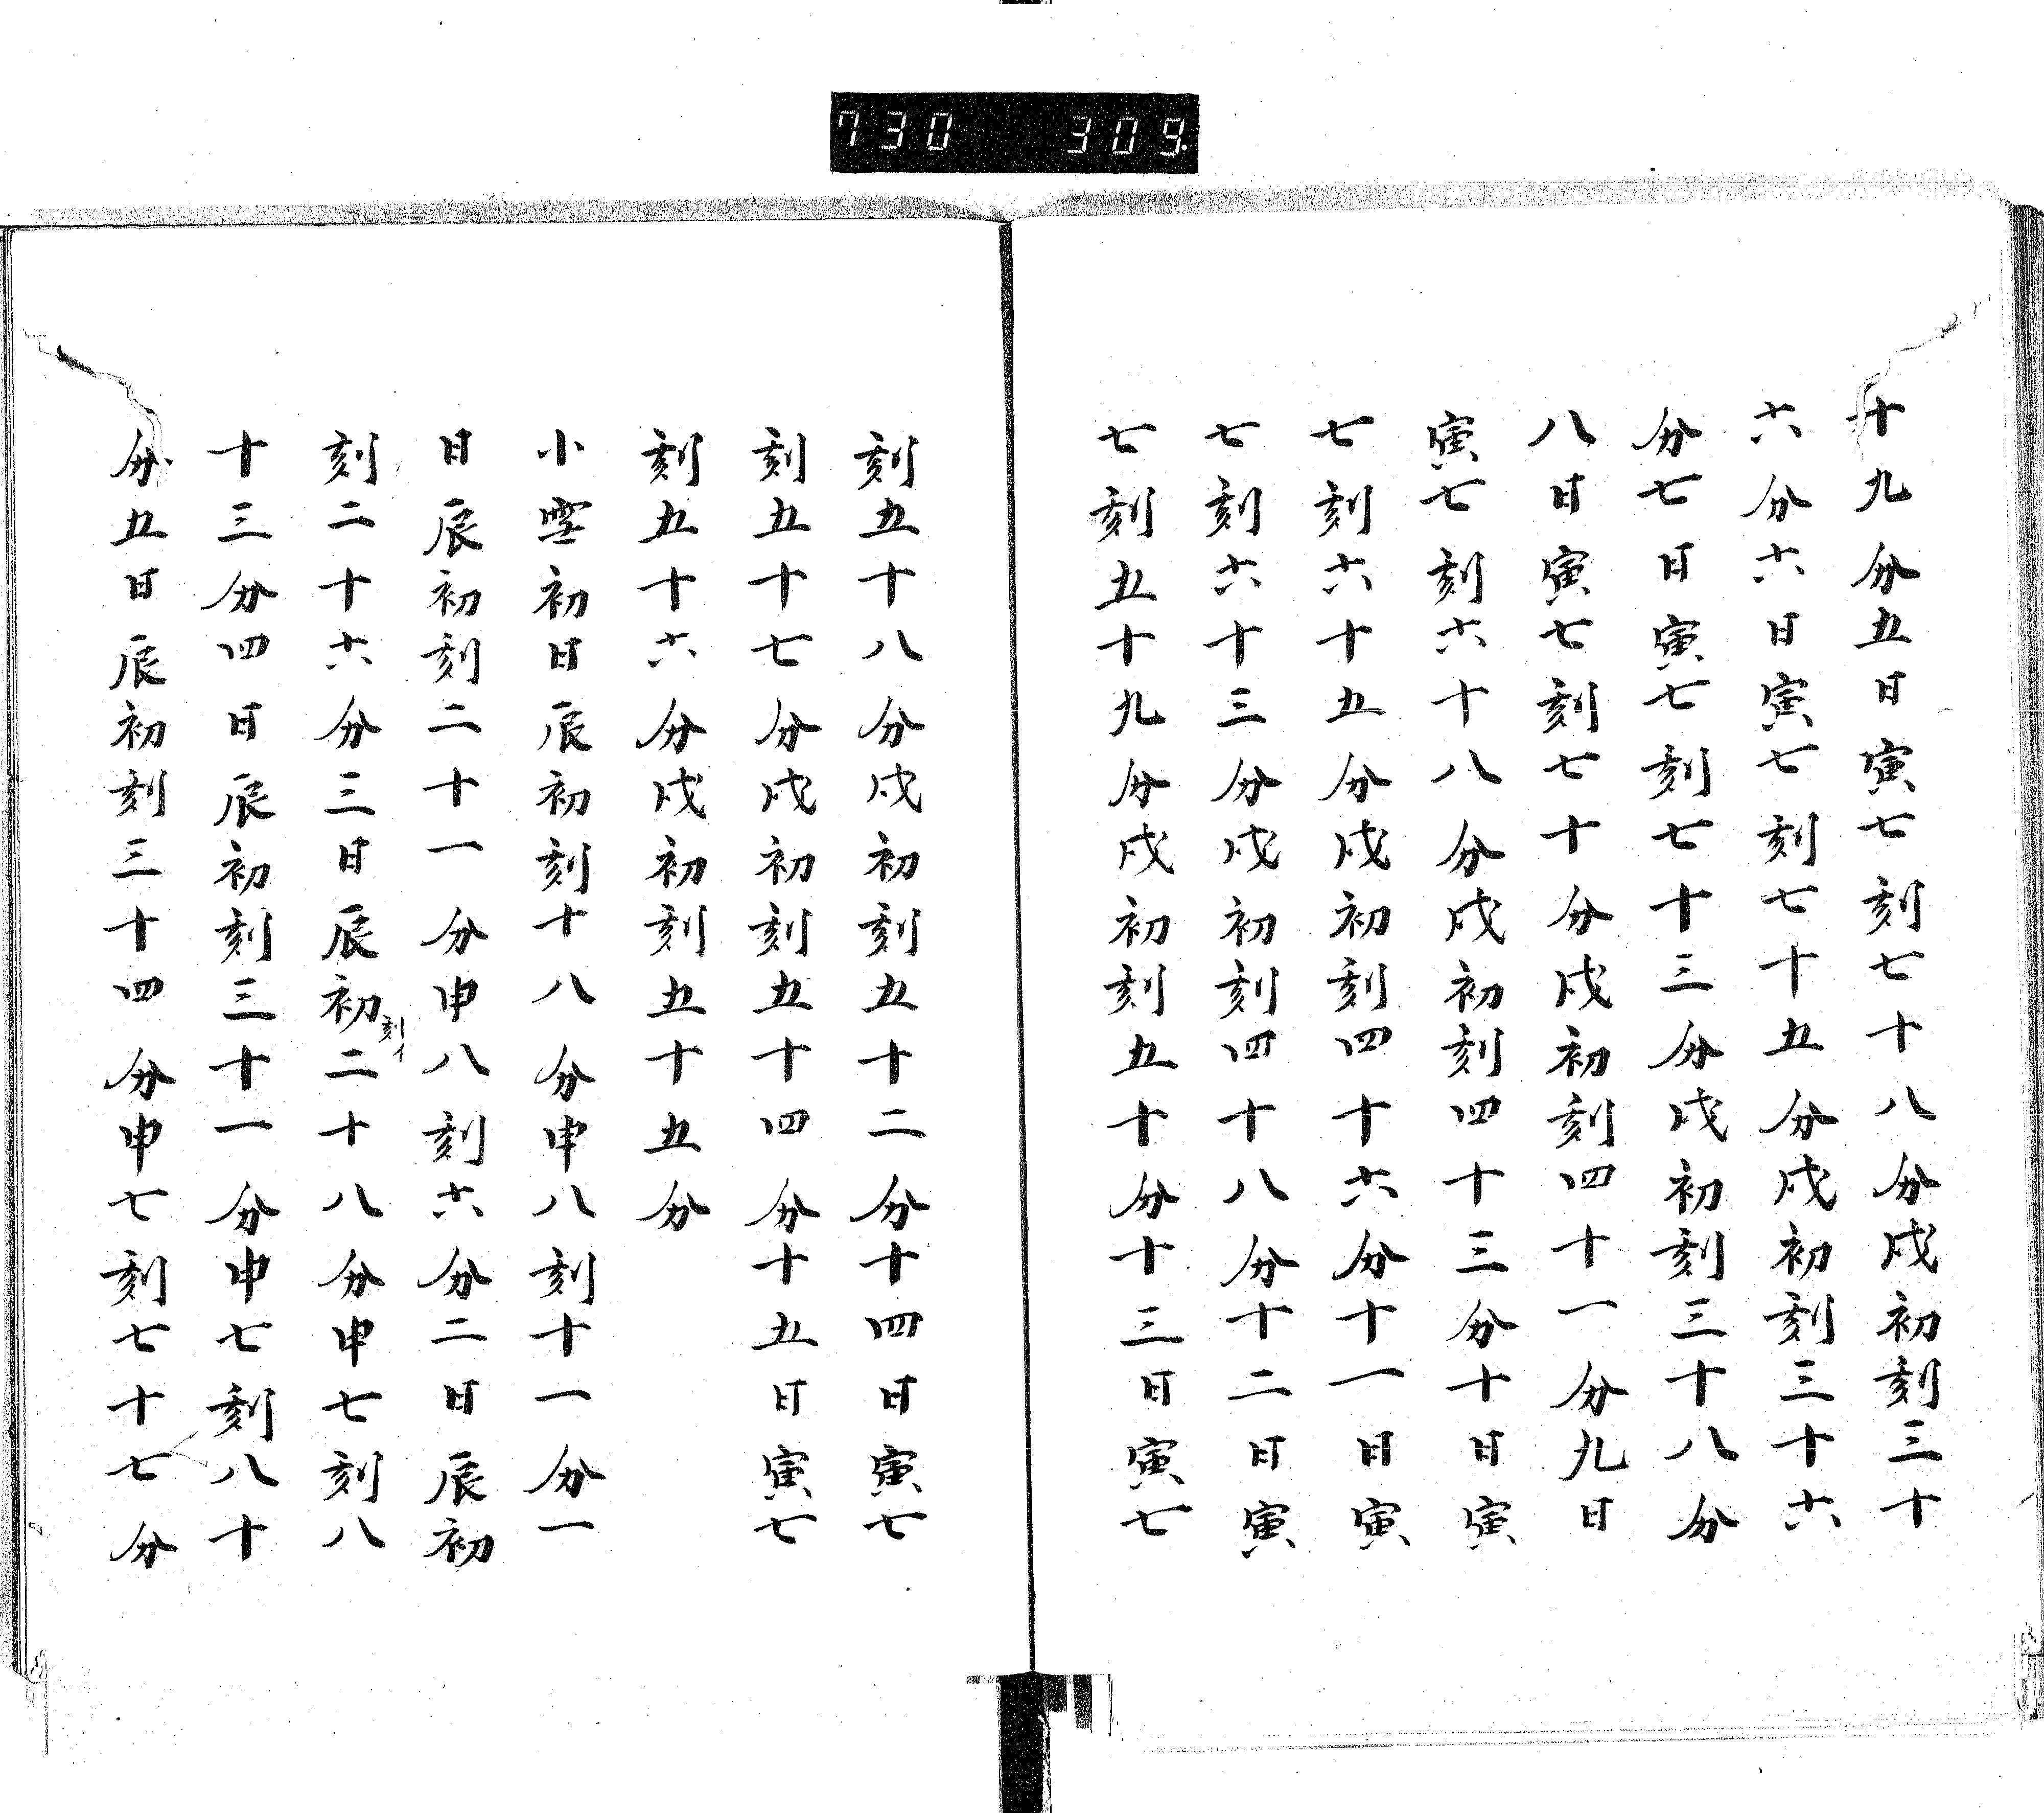 730 309.
十九分五日寅七刻七十八分戌初刻三十
六分六日寅七刻七十五分戌初刻三十六
分七日寅七刻七十三分戌初刻三十八分
八日寅七刻七十分戌初刻四十一分九日
寅七刻六十八分戌初刻四十三分十日寅
七刻六十五分戌初刻四十六分十一日寅
七刻六十三分戌初刻四十八分十二日寅
七刻五十九分戌初刻五十分十三日寅七
刻五十八分戌初刻五十二分十四日寅七
刻五十七分戌初刻五十四分十五日寅七
刻五十六分戌初刻五十五分
小雪初日辰初刻十八分申八刻十一分一
日辰初刻二十一分申八刻六分二日辰初
刻二十六分三日辰初二十八分申七刻八
刻イ
十三分四日辰初刻三十一分申七刻八十
分五日辰初刻三十四分申七刻七十七分